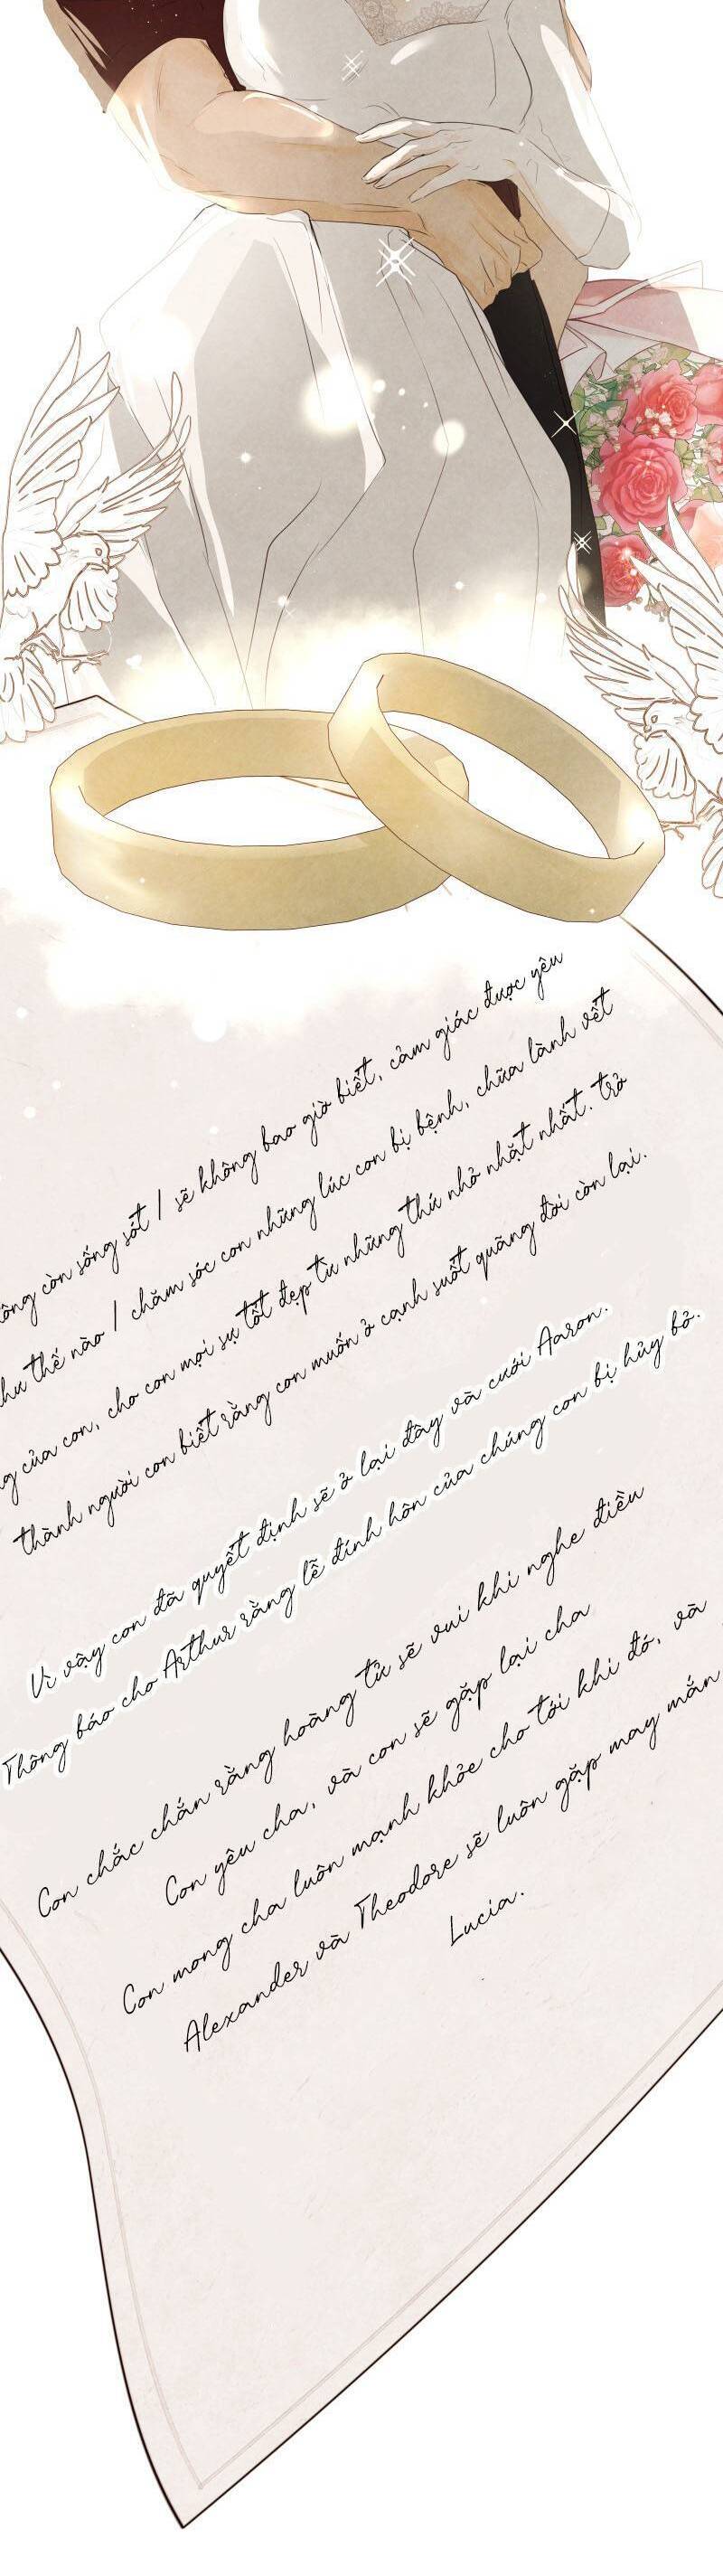 còn sống sót / sẽ không bao giờ biết, cảm giác được yêu
thế nào / chăm sóc con những lúc con bị bệnh, chữa lành vết
của con, cho con mọi sự tốt đẹp từ những thứ nhỏ nhặt nhất. trở
thành người con biết rằng con muốn ở cạnh suốt quãng đời còn lại.
Vì vậy con đã quyết định sẽ ở lại đây và cưới Aaron.
Thông báo cho Arthur rằng lễ đính hôn của chúng con bị hủy bỏ.
Con chắc chắn rằng hoàng tử sẽ vui khi nghe điều
Con yêu cha, và con sẽ gặp lại cha
Con mong cha luôn mạnh khỏe cho tới khi đó, và
Alexander và Theodore sẽ luôn gặp may mắn
Lucia.